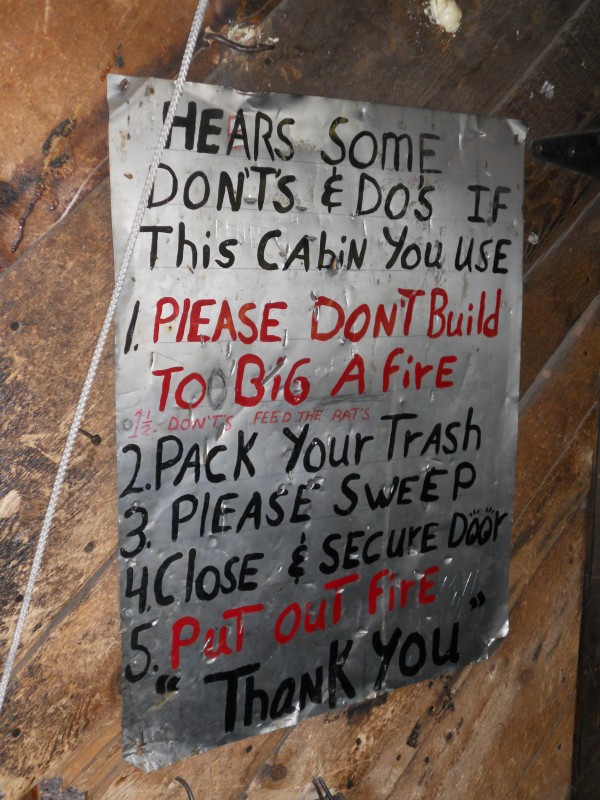 HEARS SOME
DON'T'S & DO'S IF
THis CAbiN You USE
1. PlEASE DON'T Build
TO BiG A FirE
1½. DON'T'S FEED THE RAT'S
2. PACK Your TrASH
3. PlEASE SWEEP
4. ClOSE & SECUrE DOOr
5. PuT OuT FirE
"THANK YOU"